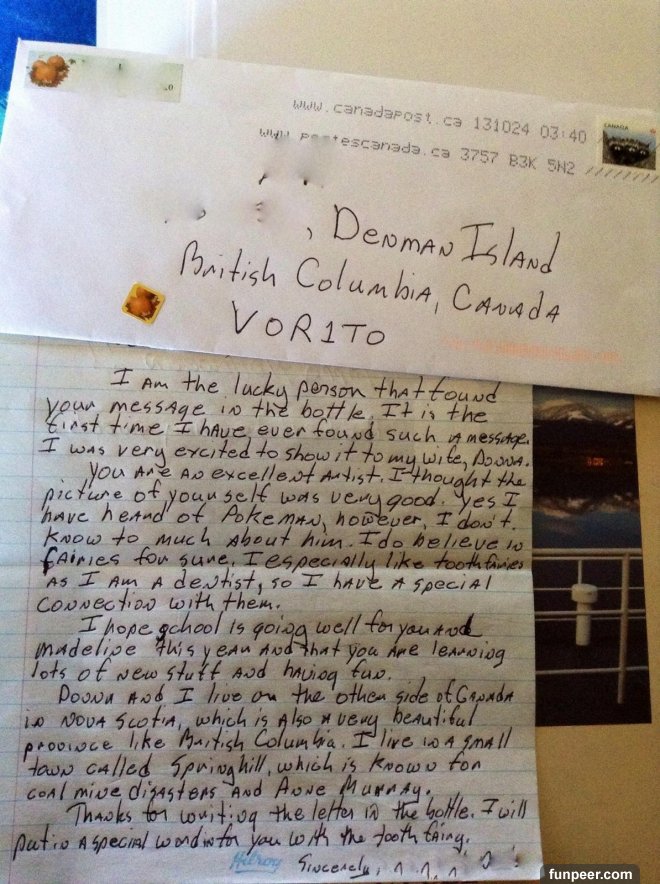 www.canadapost.ca 131024 03:40
www. postescanada.ca 3757 B3K 5N2
CANADA
, Denman Island
British Columbia, Canada
V0R1T0
I am the lucky person that found
your message in the bottle. It is the
first time I have ever found such a message.
I was very excited to show it to my wife, Donna.
You are an excellent artist. I thought the
picture of yourself was very good. Yes I
have heard of Pokeman, however, I don't
know to much about him. I do believe in
fairies for sure. I especially like tooth fairies
as I am a dentist, so I have a special
connection with them.
I hope school is going well for you and
madeline this year and that you are learning
lots of new stuff and having fun.
Donna and I live on the other side of Canada
in Nova Scotia, which is also a very beautiful
province like British Columbia. I live in a small
town called Springhill, which is known for
coal mine disasters and Anne Murray.
Thanks for writing the letter in the bottle. I will
put in a special word in for you with the tooth fairy.
Hilroy
Sincerely,
funpeer.com